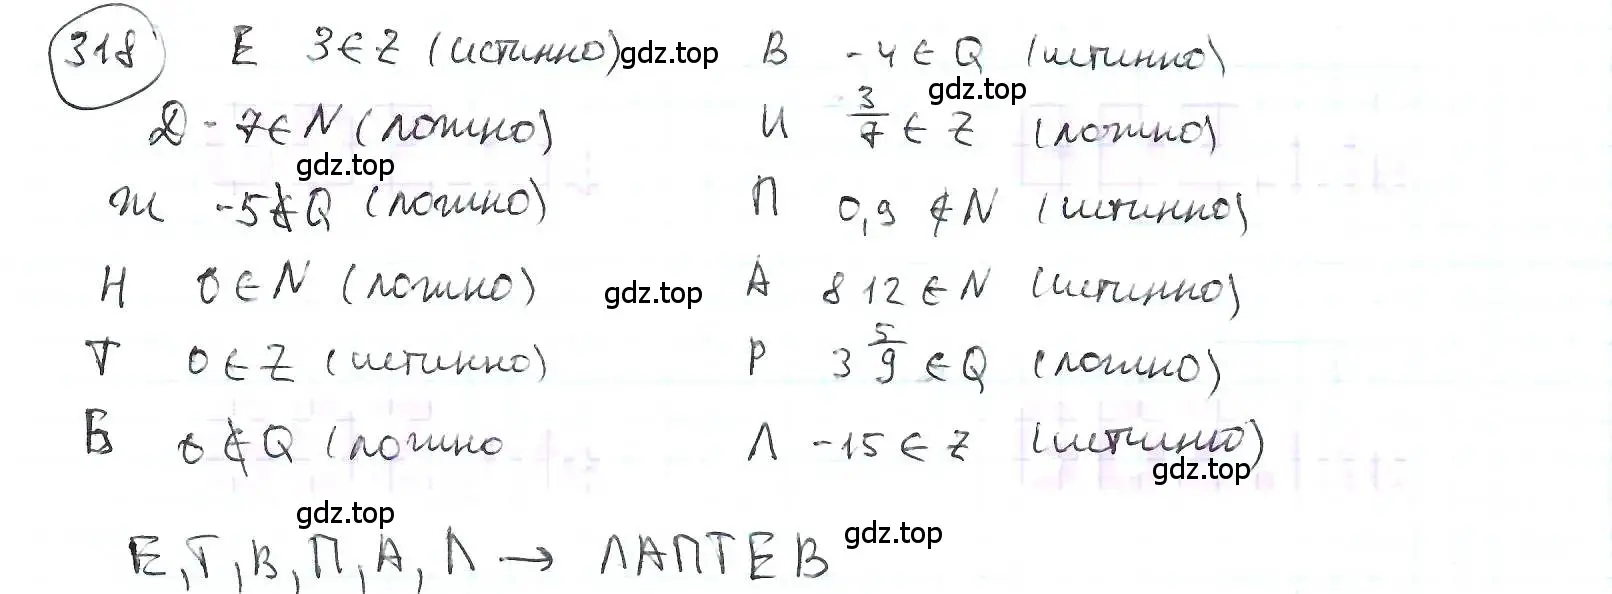 318 Е 3 ∈ Z (истинно) gdz.top В -4 ∈ Q (истинно)
gdz.top
Д -7 ∈ N (ложно) И 3/7 ∈ Z (ложно)
gdz.top
Ж -5 ∉ Q (ложно) П 0,9 ∉ N (истинно)
Н 0 ∈ N (ложно) gdz.top А 812 ∈ N (истинно)
Т 0 ∈ Z (истинно) Р 3 5/9 ∈ Q (ложно)
Б 0 ∉ Q (ложно Л -15 ∈ Z (истинно)
gdz.top
gdz.top
Е, Т, В, П, А, Л → ЛАПТЕВ gdz.top